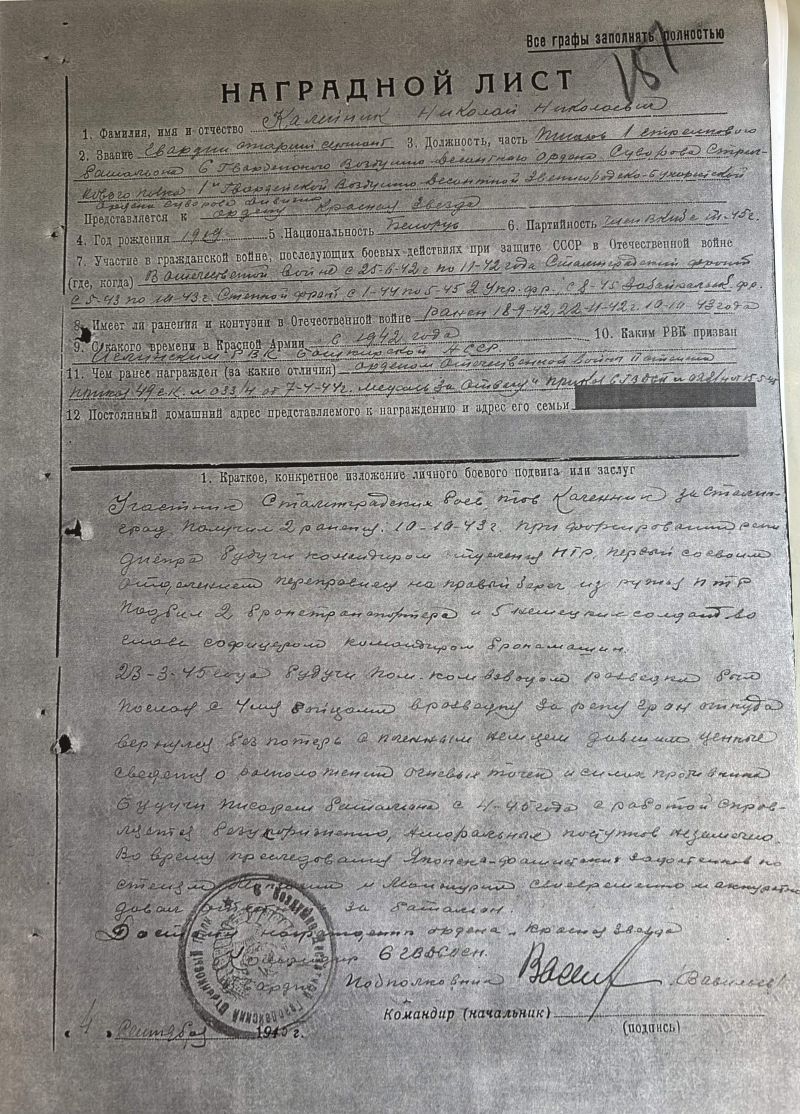 Все графы заполнять полностью
НАГРАДНОЙ ЛИСТ
1. Фамилия, имя и отчество Николай Николаевич
2. Звание Гвардии старший сержант 3. Должность, часть Писарь 1 стрелкового
батальона 6 Гвардейского Воздушно Десантного ордена Суворова Стрел-
кового полка 1й Гвардейской Воздушно-Десантной Звенигородско-Бухарестской
ордена Суворова дивизии
Представляется к ордену Красная Звезда
4. Год рождения 1919 5. Национальность Белорус 6. Партийность член ВКП(б) 45г.
7. Участие в гражданской войне, последующих боевых действиях при защите СССР в Отечественной войне
(где, когда) В Отечественной войне с 25-6-42г по 11-42 года Сталинградский фронт
с 5-43 по 10-43г. Степной фронт с 1-44 по 5-45 2 Укр. фр. с 8-45 Забайкальск. фр.
8. Имеет ли ранения и контузии в Отечественной войне ранен 18-9-42, 22-11-42г. 10-10-43 года
9. С какого времени в Красной Армии с 1942 года 10. Каким РВК призван
РВК Башкирской АССР
11. Чем ранее награжден (за какие отличия) орденом Отечественной войны
приказ 49 с.к. № 033/4 от 7-4-44г. медаль "За отвагу" приказ
12 Постоянный домашний адрес представляемого к награждению и адрес его семьи
1. Краткое, конкретное изложение личного боевого подвига или заслуг
Участник Сталинградских боев тов. за Сталин-
град получил 2 ранения. 10-10-43г. при форсировании реки
Днепра будучи командиром отделения ПТР первый со своим
отделением переправился на правый берег из ружья ПТР
подбил 2 бронетранспортера и 5 немецких солдат во
главе с офицером командиром бронемашин.
23-3-45 года будучи пом. ком. взводом разведки был
послан с 4мя бойцами в разведку за реку Грон откуда
вернулся без потерь с пленным немцем давшим ценные
сведения о расположении огневых точек и силах противника
Будучи писарем батальона с 4-45 года с работой справ-
ляется безукоризненно, аморальных поступков не замечено.
Во время преследования Японско-фашистских захватчиков по
степям Монголии и Манчжурии своевременно и аккуратно
давал за батальон.
Достоин награждения ордена "Красная Звезда"
Командир 6 ГВДСП.
Гвардии Подполковник Васильев
Командир (начальник)
(подпись)
4 Сентября 1945 г.